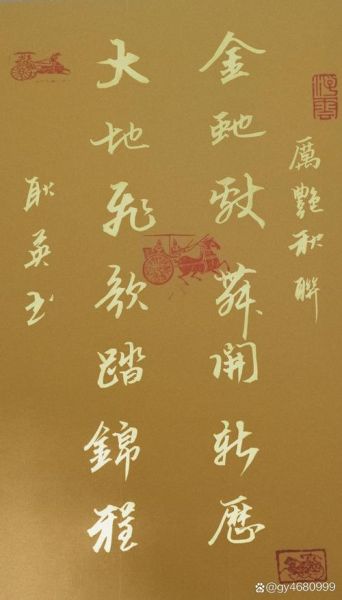 厲艷秋聯
金虵舞開新歷
大地飛歌踏錦程
耿英书
@gy4680999